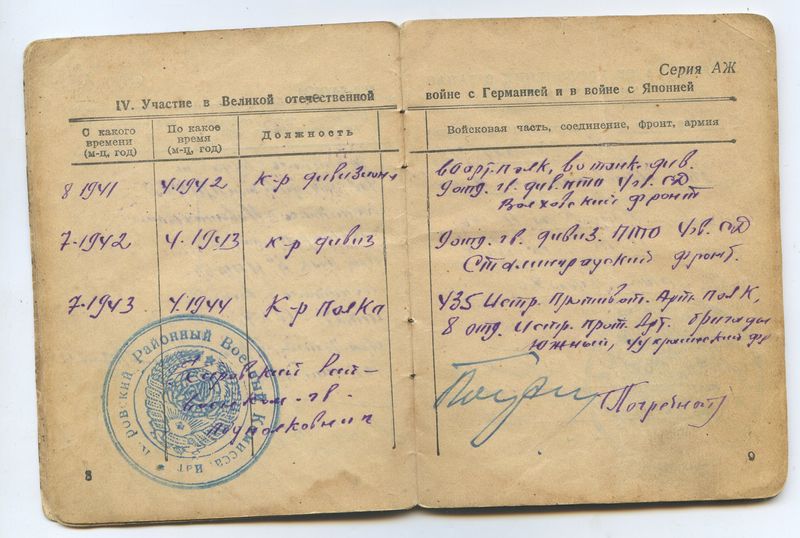 Серия АЖ
IV. Участие в Великой отечественной войне с Германией и в войне с Японией
С какого времени (м-ц, год)
По какое время (м-ц, год)
Должность
Войсковая часть, соединение, фронт, армия
8 1941 4.1942 К-р дивизиона
див.
9 отд. гв. див. ПТО 4 гв. СД
Волховский фронт
7-1942 4.1943 к-р дивиз
9 отд. гв. дивиз. ПТО 4 гв. СД
Сталинградский фронт.
7-1943 4.1944 К-р полка
435 Истр. Противот. Арт. Полк,
8 отд. Истр. прот. Арт. бригады
Южный, 4 украинский фр
Районный Военный Комиссариат
гв.
подполковник
(Погребной)
8
9